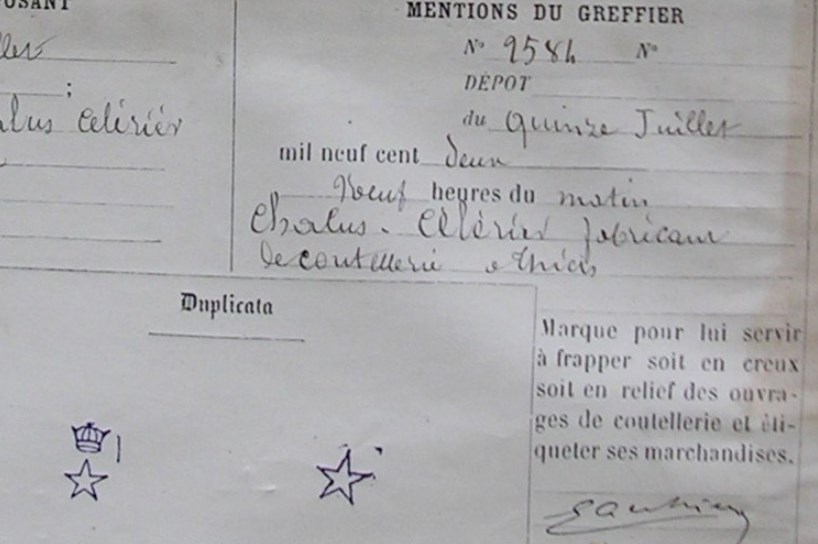 OSANT
;
alus Célérier
MENTIONS DU GREFFIER
N° 9584 N°
DÉPOT
du Quinze Juillet
mil neuf cent deux
Neuf heures du matin
Chalus. Célérier fabricant
de coutellerie à Thiers
Duplicata
Marque pour lui servir
à frapper soit en creux
soit en relief des ouvra-
ges de coutellerie et éti-
queter ses marchandises.